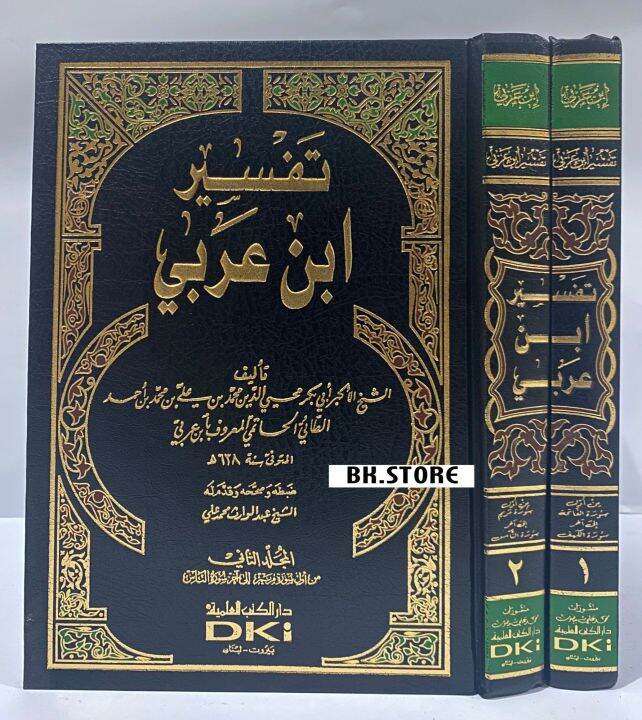 تفسير
ابن عربي
تأليف
الشيخ الأكبر أبي بكر محيي الدين محمد بن علي بن محمد بن أحمد
الطائي الحاتمي المعروف بابن عربي
المتوفى سنة ٦٣٨هـ
ضبطه وصححه وقدم له
الشيخ عبد الوارث محمد علي
المجلد الثاني
من أول سورة مريم إلى آخر سورة الناس
دار الكتب العلمية
DKi
بيروت - لبنان
BK.STORE
ابن عربي
تفسير ابن عربي
تفسير
ابن
عربي
من أول
سورة مريم
إلى آخر
سورة الناس
٢
منشورات
محمد علي بيضون
دار الكتب العلمية
DKi
بيروت - لبنان
ابن عربي
تفسير ابن عربي
تفسير
ابن
عربي
من أول
سورة الفاتحة
إلى آخر
سورة الكهف
١
منشورات
محمد علي بيضون
دار الكتب العلمية
DKi
بيروت - لبنان